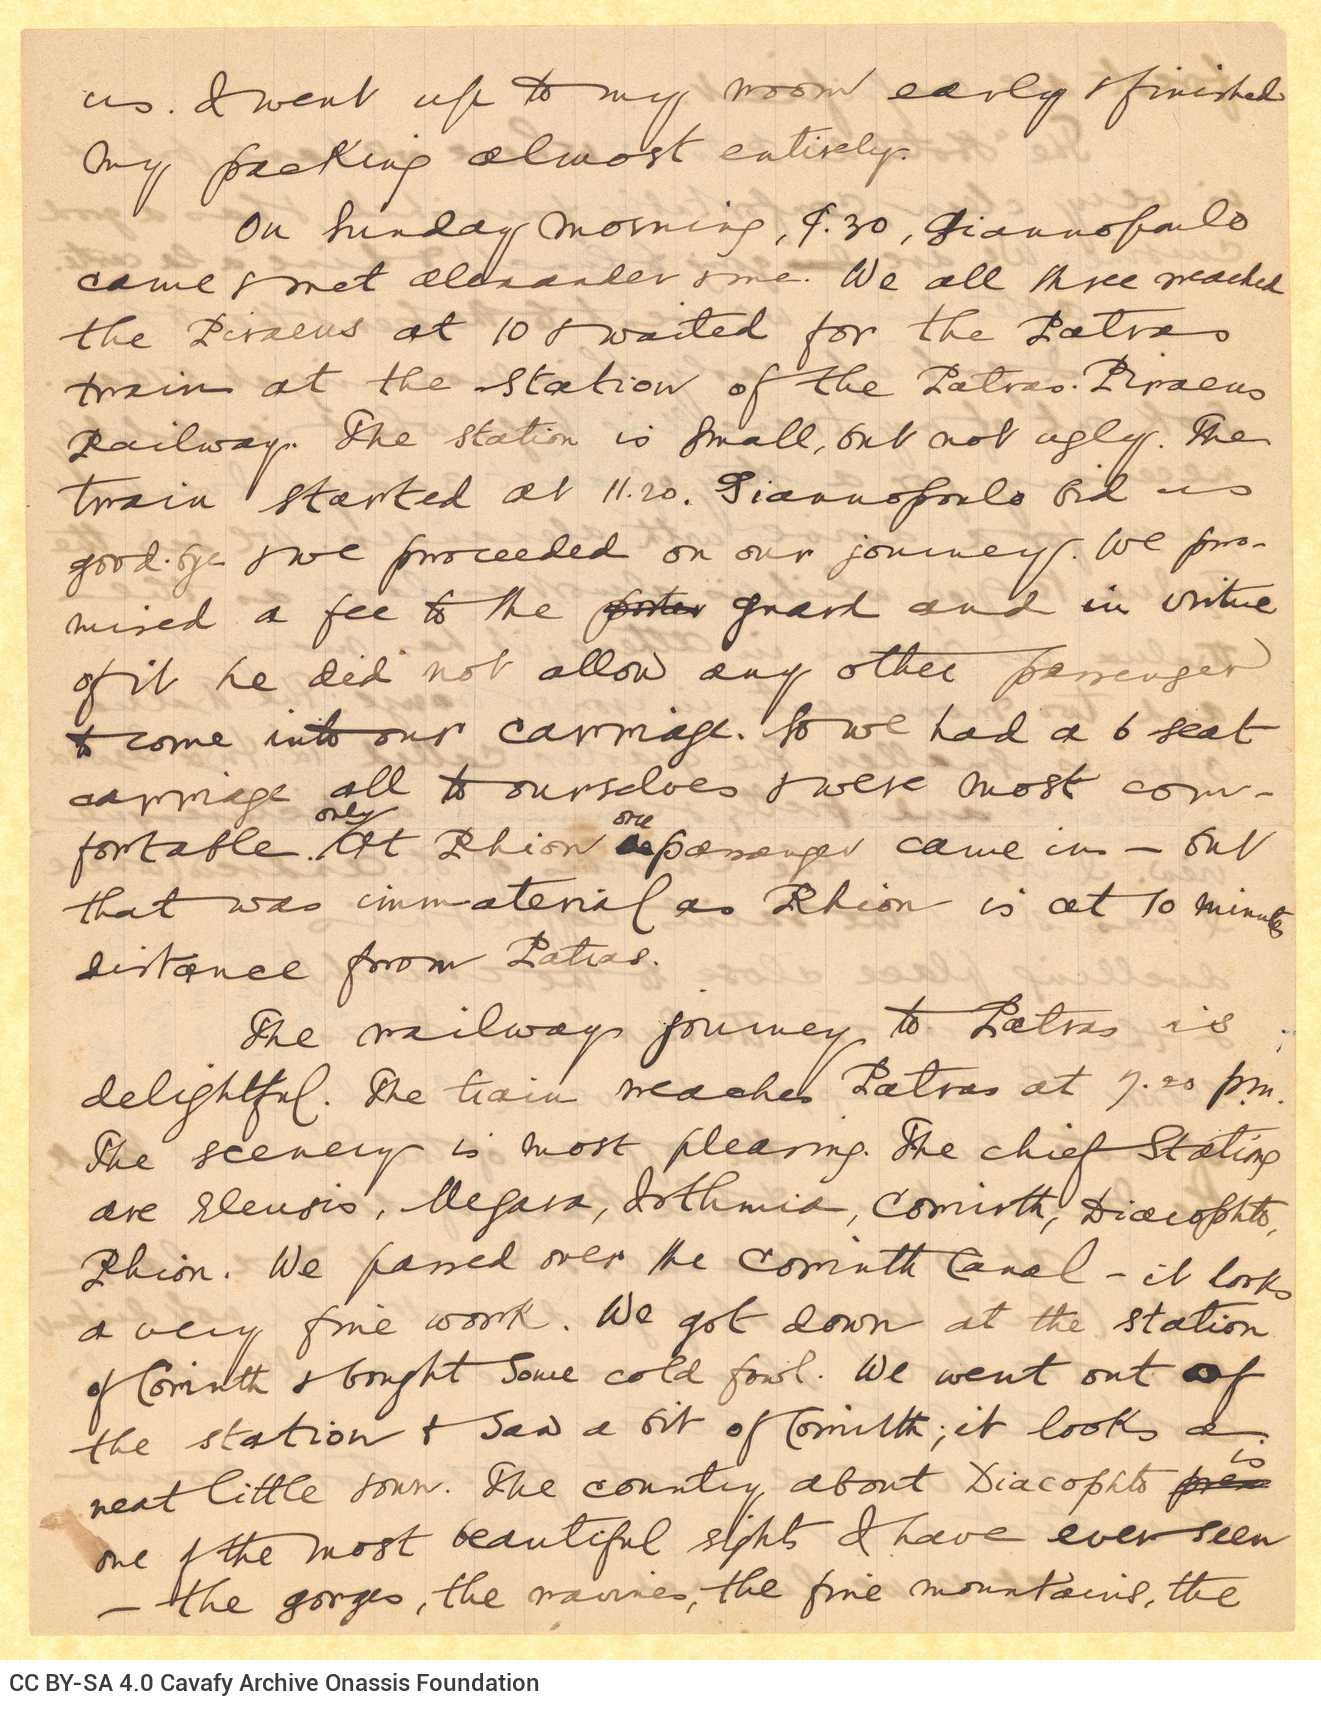 us. I went up to my room early & finished
my packing almost entirely.
On Sunday morning, 9.30, Giannopoulo
came & met Alexander & me. We all three reached
the Piraeus at 10 & waited for the Patras
train at the station of the Patras-Piraeus
Railway. The station is small, but not ugly. The
train started at 11.20. Giannopoulo bid us
good-bye & we proceeded on our journey. We pro-
mised a fee to the porter guard and in virtue
of it he did not allow any other passenger
to come into our carriage. So we had a 6 seat
carriage all to ourselves & were most com-
only one
fortable. At Rhion a passenger came in — but
that was immaterial as Rhion is at 10 minutes
distance from Patras.
The railway journey to Patras is
delightful. The train reaches Patras at 7.20 p.m.
The scenery is most pleasing. The chief stations
are Eleusis, Megara, Isthmia, Corinth, Diacophto,
Rhion. We passed over the Corinth Canal – it looks
a very fine work. We got down at the station
of Corinth & bought some cold fowl. We went out of
the station & saw a bit of Corinth; it looks a
is
neat little town. The country about Diacophto
one of the most beautiful sights I have ever seen
— the gorges, the ravines, the fine mountains, the
CC BY-SA 4.0 Cavafy Archive Onassis Foundation